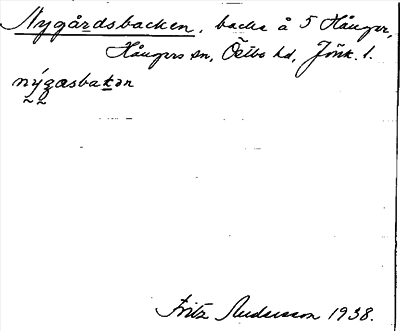 Nygårdsbacken, backe å 5 Hånger,
Hångers sn, Östbo hd, Jönk. l.
nýgasbakən
Fritz Andersson 1938.